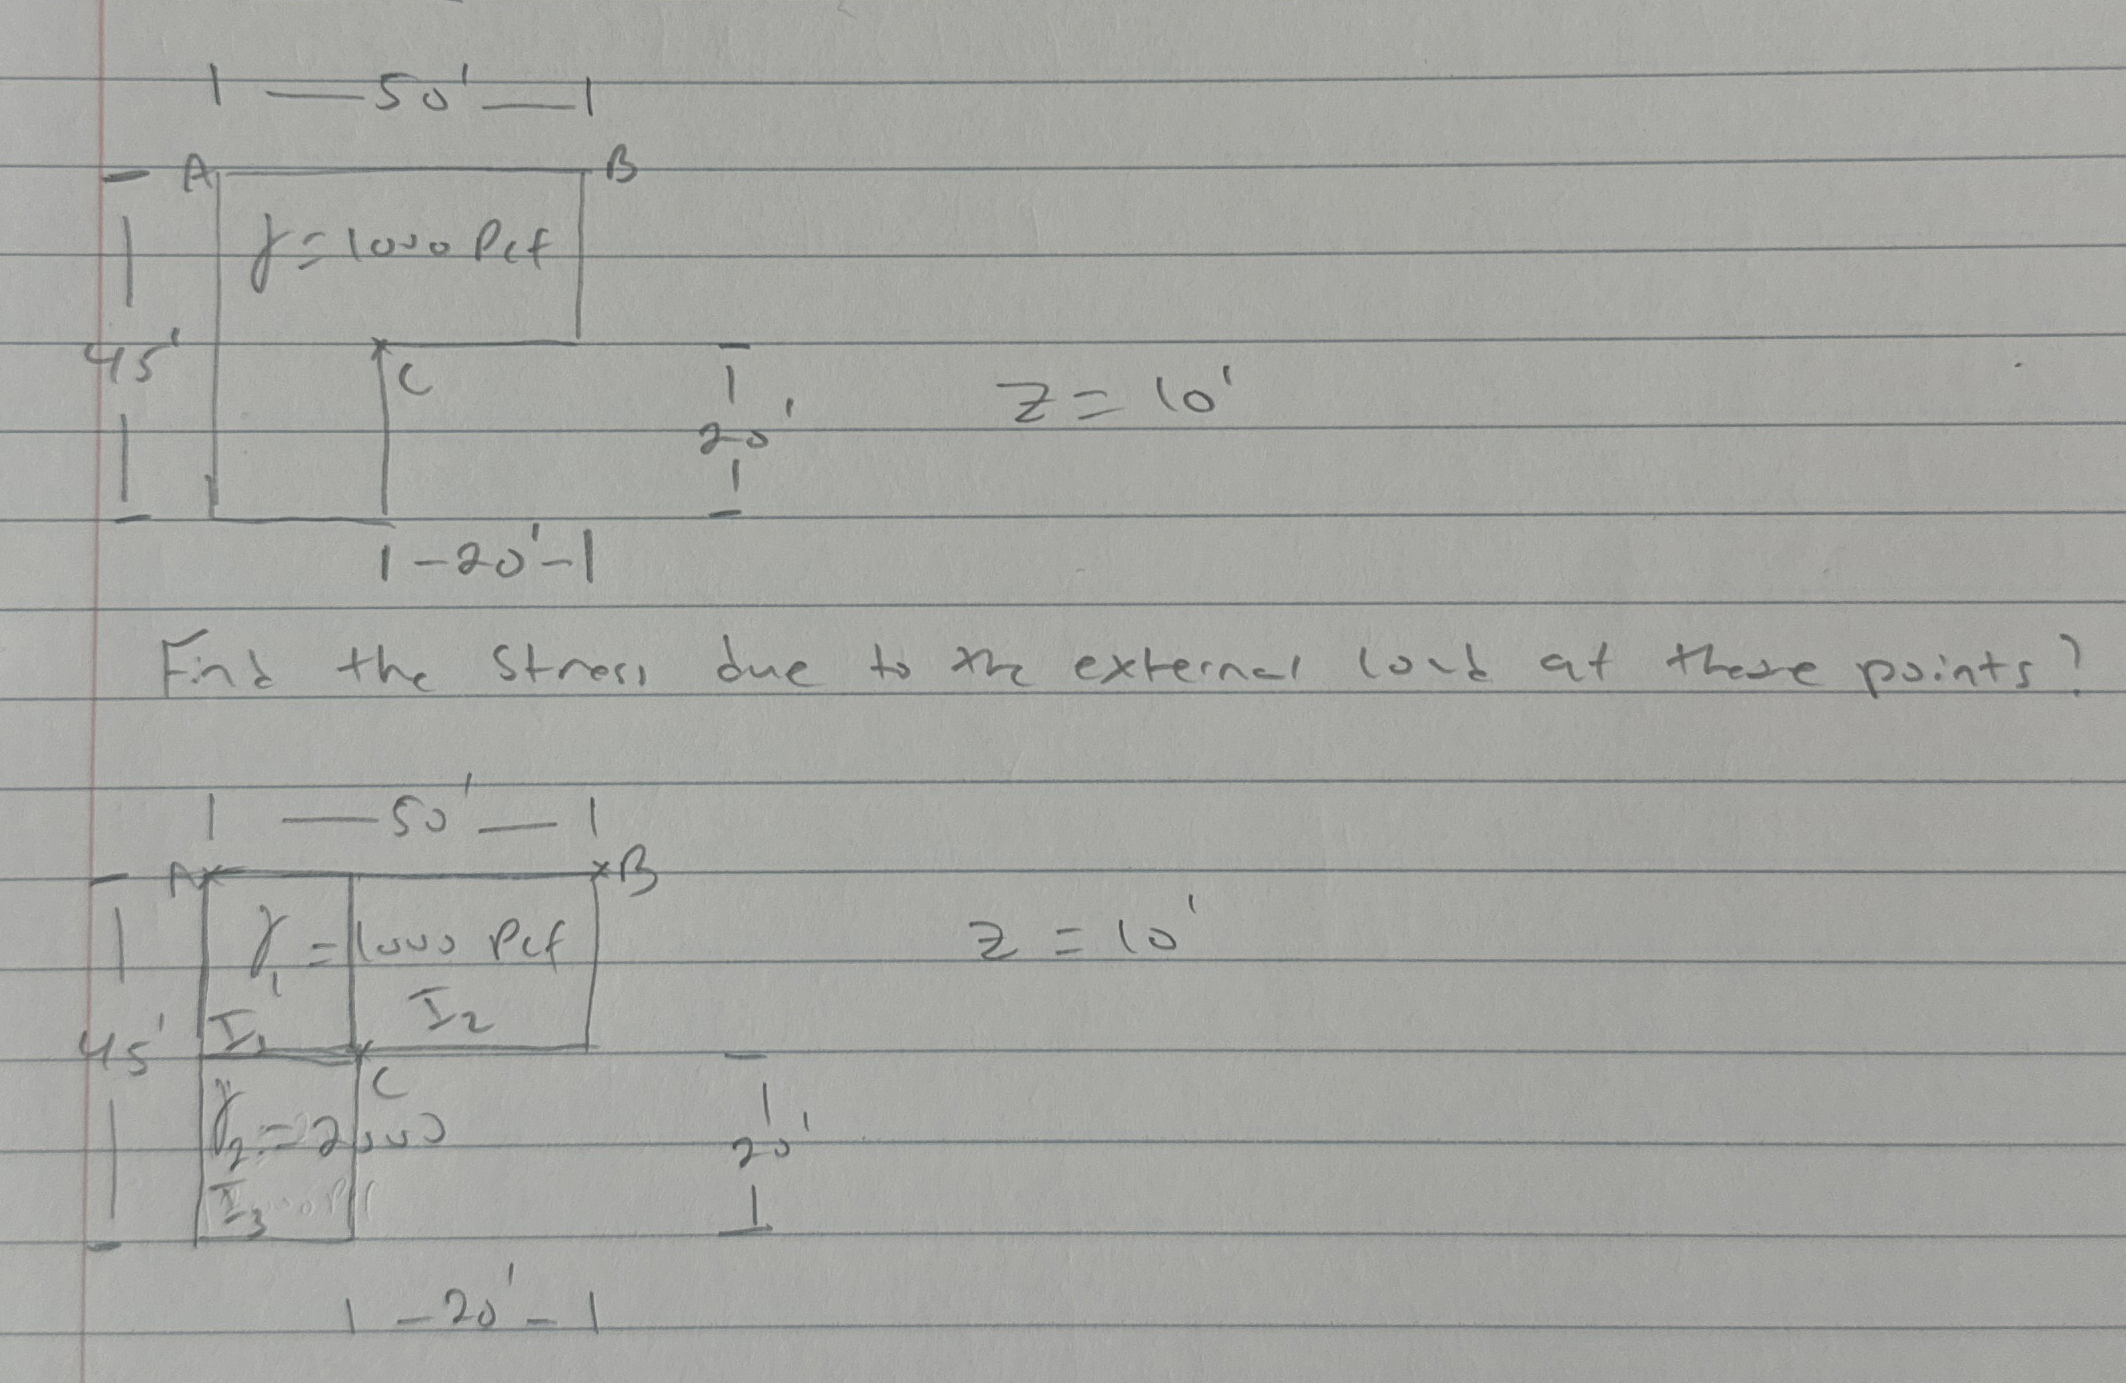 50'
A B
γ = 1000 Pcf
45' C
20' Z = 10'
20'
Find the stress due to the external load at these points?
50'
A B
γ₁ = 1000 Pcf z = 10'
I₁ I₂
45' C
γ₂ = 2000 20'
I₃
20'